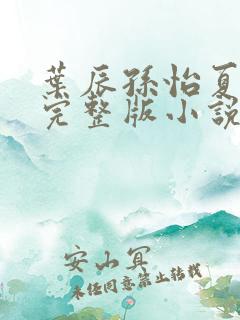 葉辰孫怡夏
完整版小說
安山宜
未经同意禁止转载